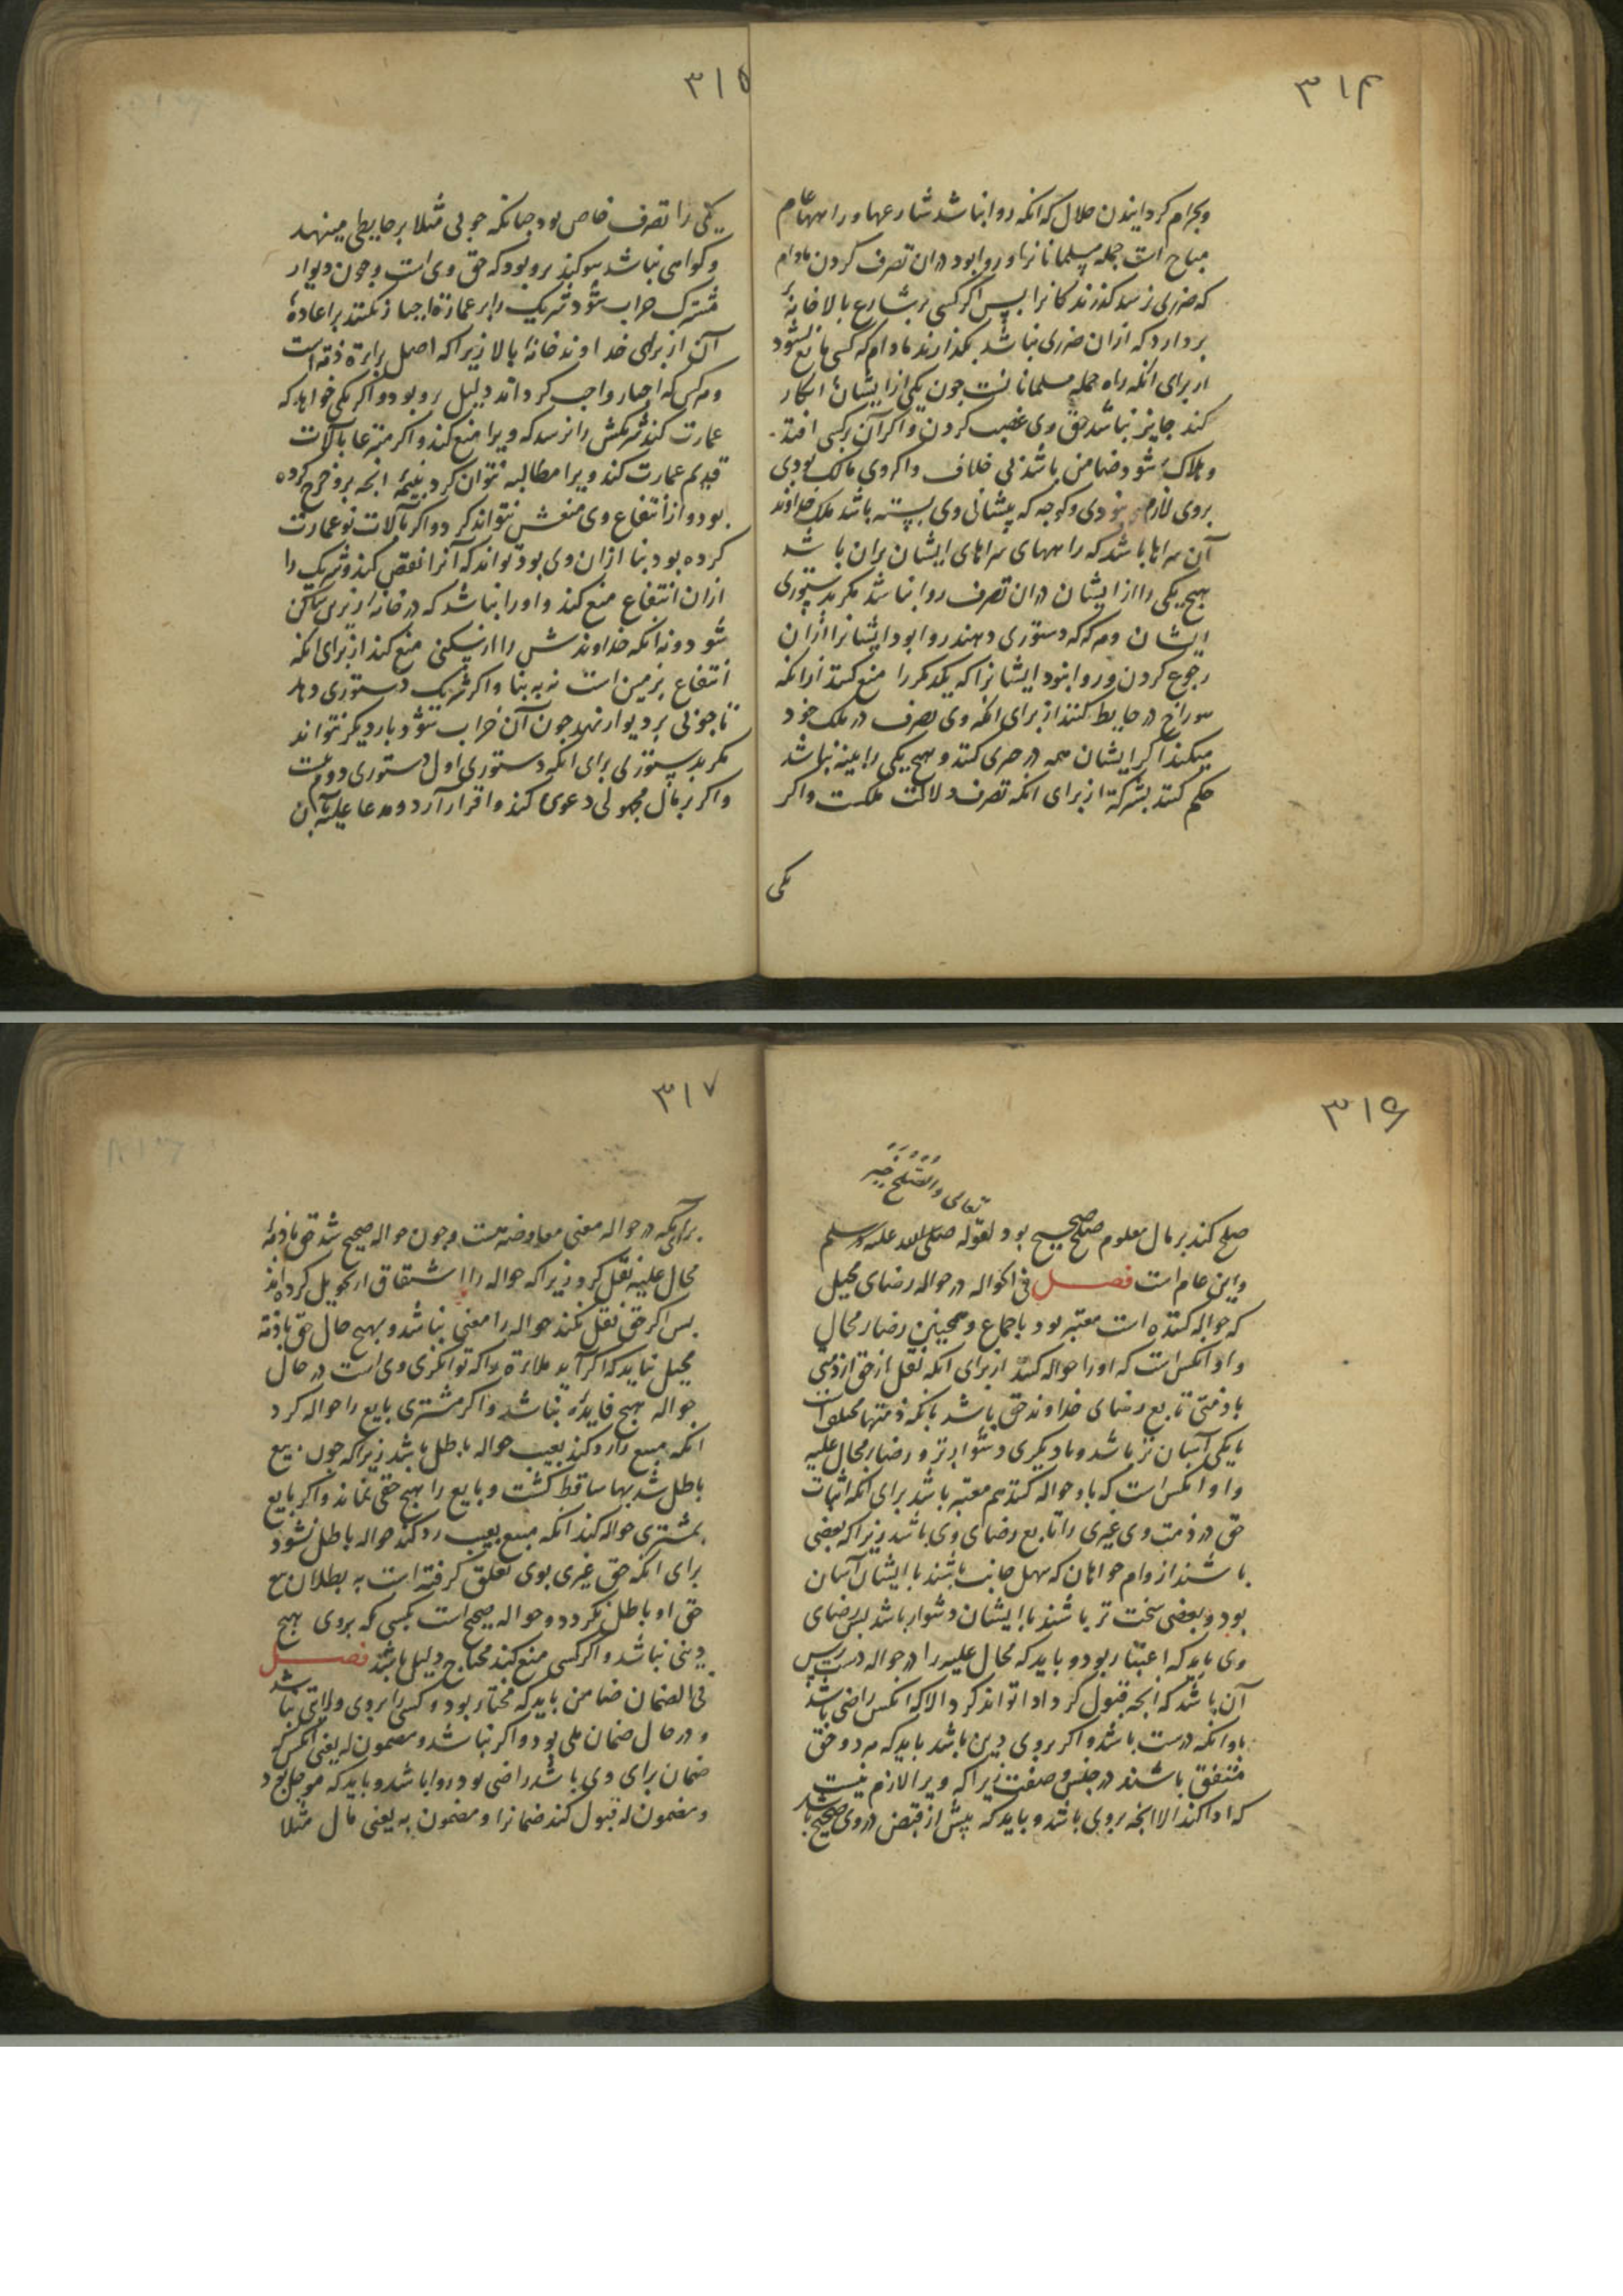 ۳۱۴
وبحرام کردانیدن حلال که انکه روا نباشد شارعها و راهها عام
مباح است جمله مسلمانانرا و روا بود در ان تصرف کردن مادام
که ضرری نرسد کذرندکانرا پس اکر کسی بر شارع بالا خانهٔ
بردارد که از ان ضرری نباشد بکذارند مادام که کسی مانع نشود
از برای انکه راه جمله مسلمانانست چون یکی از ایشان انکار
کند جایز نباشد حق وی غصب کردن و اکر آن بر کسی افتد
و هلاک شود ضامن باشد بی خلاف و اکر وی مالک بودی
بروی لازم نبودی و کوچه که پیشانی وی بسته باشد ملک خداوند
آن سراها باشد که راههای سراهای ایشان بران باشد
هیچ یکی را از ایشان در ان تصرف روا نباشد مکر بدستوری
ایشان و هرکه که دستوری دهند روا بود ایشانرا ازان
رجوع کردن و روا نبود ایشانرا که یکدیکر را منع کنند از انکه
سوراخ در حایط کنند از برای انکه وی تصرف در ملک خود
میکند اکر ایشان همه در جری کنند و هیچ یکی را بینه نباشد
حکم کنند بشرکة از برای انکه تصرف دلالت ملکست و اکر
یکی
۳۱۵
یکی را تصرف خاص بود چنانکه چوبی مثلا بر حایطی مینهد
و کواهی نباشد سوکند برو بود که حق وی است و چون دیوار
مشترک خراب شود شریک را بر عمارة اجبار نکنند بر اعادهٔ
آن از برای خداوند خانهٔ بالا زیرا که اصل براءة ذمه است
و هر کس که اجبار واجب کرداند دلیل برو بود و اکر یکی خواهد که
عمارت کند شریکش را نرسد که ویرا منع کند و اکر متبرعا بآلات
قدیم عمارت کند ویرا مطالبه نتوان کرد بنیمهٔ انچه برو خرج کرده
بود و از انتفاع وی منعش نتواند کرد و اکر بآلات نو عمارت
کرده بود بنا ازان وی بود تواند که آنرا نقض کند و شریک را
ازان انتفاع منع کند و او را نباشد که در خانه از زیری ساکن
شود و نه انکه خداوندش را از سکنی منع کند از برای انکه
انتفاع بزمین است نه به بنا و اکر شریک دستوری دهد
تا چوبی بر دیوار نهد چون آن خراب شود بار دیکر نتواند
مکر بدستوری برای انکه دستوری اول دستوری دوم نیست
و اکر بر مال مجهولی دعوی کند و اقرار آرد و مدعا علیه بآن
۳۱۶
تعالی والصلح خیر
صلح کند بر مال معلوم صلح صحیح بود لقوله صلی الله علیه وسلم
واین عام است فصل فی الحواله در حواله رضای محیل
که حواله کننده است معتبر بود باجماع و همچنین رضاء محال
و او انکس است که او را حواله کنند از برای انکه نقل از حق از ذمتی
با ذمتی تابع رضای خداوند حق باشد بانکه ذمتها مختلف است
با یکی آسان تر باشد و با دیکری دشوارتر و رضاء محال علیه
و او انکس است که باو حواله کنند هم معتبر باشد برای انکه اثبات
حق در ذمت وی غیری را تابع رضای وی باشد زیرا که بعضی
باشند از وام خواهان که سهل جانب باشند با ایشان آسان
بود و بعضی سخت تر باشند با ایشان دشوار باشد پس رضای
وی باید که اعتبار بود و باید که محال علیه را در حواله دست رس
آن باشد که انچه قبول کرد ادا تواند کرد والا که انکس راضی باشد
باوانکه درست باشد و اکر بروی دین باشد باید که هر دو حق
متفق باشند در جنس و صفت زیرا که ویرا لازم نیست
که ادا کند الا انچه بروی باشد و باید که پیش از قبض در وی صحیح باشد
۳۱۷
برای آنکه در حواله معنی معاوضه هست و چون حواله صحیح شد حق با ذمهٔ
محال علیه نقل کرد زیرا که حواله را اشتقاق از تحویل کرده اند
پس اکر حق نقل نکند حواله را معنی نباشد و بهیچ حال حق با ذمهٔ
محیل نیاید که اکر آید ملاءة را که توانکری وی است در حال
حواله هیچ فایدهٔ نباشد و اکر مشتری بایع را حواله کرد
انکه مبیع را رد کند بعیب حواله باطل باشد زیرا که چون بیع
باطل شد بها ساقط کشت و بایع را هیچ حقی نماند و اکر بایع
بمشتری حواله کند انکه مبیع بعیب رد کند حواله باطل نشود
برای انکه حق غیری بوی تعلق کرفته است به بطلان بیع
حق او باطل نکردد و حواله صحیح است بکسی که بروی هیچ
دینی نباشد و اکر کسی منع کند محتاج دلیل باشد فصل
فی الضمان ضامن باید که مختار بود و کسی را بروی ولایتی نباشد
و در حال ضمان ملی بود و اکر نباشد و مضمون له یعنی انکس که
ضمان برای وی باشد راضی بود روا باشد و باید که موجل بود
و مضمون له قبول کند ضمانرا و مضمون به یعنی مال مثلا